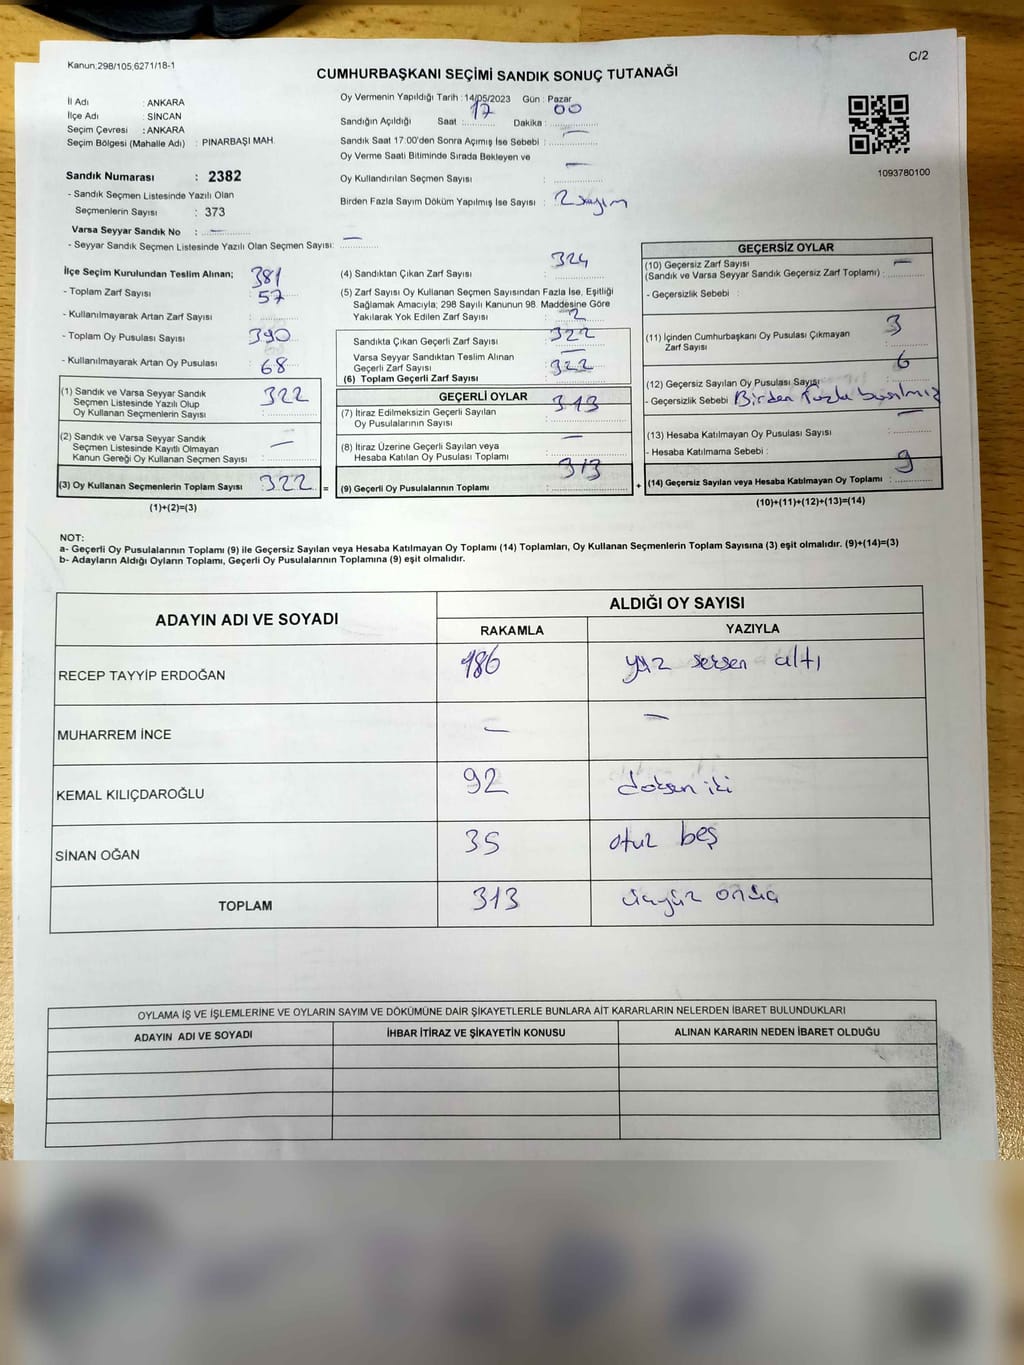 Kanun;298/105,6271/18-1
C/2
CUMHURBAŞKANI SEÇİMİ SANDIK SONUÇ TUTANAĞI
İl Adı : ANKARA
İlçe Adı : SİNCAN
Seçim Çevresi : ANKARA
Seçim Bölgesi (Mahalle Adı) : PINARBAŞI MAH.
Sandık Numarası : 2382
- Sandık Seçmen Listesinde Yazılı Olan
Seçmenlerin Sayısı : 373
Varsa Seyyar Sandık No : —
- Seyyar Sandık Seçmen Listesinde Yazılı Olan Seçmen Sayısı: —
Oy Vermenin Yapıldığı Tarih : 14/05/2023 Gün : Pazar
Sandığın Açıldığı Saat : 17 Dakika : 00
Sandık Saat 17.00'den Sonra Açımış İse Sebebi : —
Oy Verme Saati Bitiminde Sırada Bekleyen ve
Oy Kullandırılan Seçmen Sayısı : —
Birden Fazla Sayım Döküm Yapılmış İse Sayısı : 2 sayım
1093780100
İlçe Seçim Kurulundan Teslim Alınan;
- Toplam Zarf Sayısı : 381
- Kullanılmayarak Artan Zarf Sayısı : 57
- Toplam Oy Pusulası Sayısı : 390
- Kullanılmayarak Artan Oy Pusulası : 68
(1) Sandık ve Varsa Seyyar Sandık
Seçmen Listesinde Yazılı Olup
Oy Kullanan Seçmenlerin Sayısı : 322
(2) Sandık ve Varsa Seyyar Sandık
Seçmen Listesinde Kayıtlı Olmayan
Kanun Gereği Oy Kullanan Seçmen Sayısı : —
(3) Oy Kullanan Seçmenlerin Toplam Sayısı : 322
(1)+(2)=(3)
=
(4) Sandıktan Çıkan Zarf Sayısı : 324
(5) Zarf Sayısı Oy Kullanan Seçmen Sayısından Fazla İse, Eşitliği
Sağlamak Amacıyla; 298 Sayılı Kanunun 98. Maddesine Göre
Yakılarak Yok Edilen Zarf Sayısı : 2
Sandıkta Çıkan Geçerli Zarf Sayısı : 322
Varsa Seyyar Sandıktan Teslim Alınan
Geçerli Zarf Sayısı : —
(6) Toplam Geçerli Zarf Sayısı : 322
GEÇERLİ OYLAR
(7) İtiraz Edilmeksizin Geçerli Sayılan
Oy Pusulalarının Sayısı : 313
(8) İtiraz Üzerine Geçerli Sayılan veya
Hesaba Katılan Oy Pusulası Toplamı : —
(9) Geçerli Oy Pusulalarının Toplamı : 313
+
GEÇERSİZ OYLAR
(10) Geçersiz Zarf Sayısı
(Sandık ve Varsa Seyyar Sandık Geçersiz Zarf Toplamı) : —
- Geçersizlik Sebebi :
(11) İçinden Cumhurbaşkanı Oy Pusulası Çıkmayan
Zarf Sayısı : 3
(12) Geçersiz Sayılan Oy Pusulası Sayısı : 6
- Geçersizlik Sebebi : Birden fazla basılmış
(13) Hesaba Katılmayan Oy Pusulası Sayısı : —
- Hesaba Katılmama Sebebi :
(14) Geçersiz Sayılan veya Hesaba Katılmayan Oy Toplamı : 9
(10)+(11)+(12)+(13)=(14)
NOT:
a- Geçerli Oy Pusulalarının Toplamı (9) ile Geçersiz Sayılan veya Hesaba Katılmayan Oy Toplamı (14) Toplamları, Oy Kullanan Seçmenlerin Toplam Sayısına (3) eşit olmalıdır. (9)+(14)=(3)
b- Adayların Aldığı Oyların Toplamı, Geçerli Oy Pusulalarının Toplamına (9) eşit olmalıdır.
ADAYIN ADI VE SOYADI ALDIĞI OY SAYISI
RAKAMLA YAZIYLA
RECEP TAYYİP ERDOĞAN 186 yüz seksen altı
MUHARREM İNCE — —
KEMAL KILIÇDAROĞLU 92 doksan iki
SİNAN OĞAN 35 otuz beş
TOPLAM 313 üçyüz onüç
OYLAMA İŞ VE İŞLEMLERİNE VE OYLARIN SAYIM VE DÖKÜMÜNE DAİR ŞİKAYETLERLE BUNLARA AİT KARARLARIN NELERDEN İBARET BULUNDUKLARI
ADAYIN ADI VE SOYADI İHBAR İTİRAZ VE ŞİKAYETİN KONUSU ALINAN KARARIN NEDEN İBARET OLDUĞU